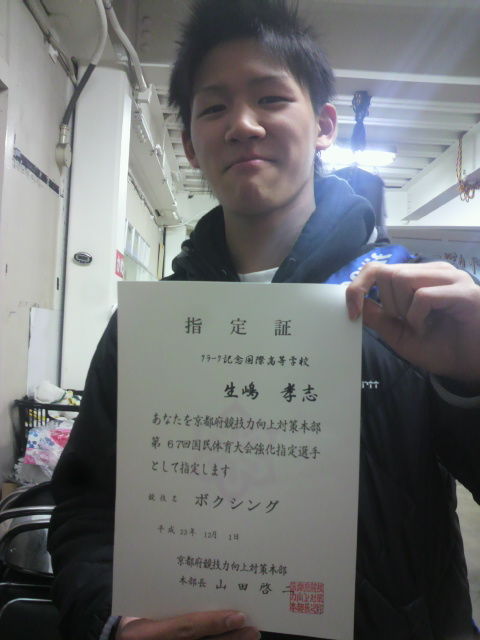 指定証
クラーク記念国際高等学校
生嶋 孝志
あなたを京都府競技力向上対策本部
第67回国民体育大会強化指定選手
として指定します
競技名 ボクシング
平成 23年 12月 1日
京都府競技力向上対策本部
本部長 山田啓二